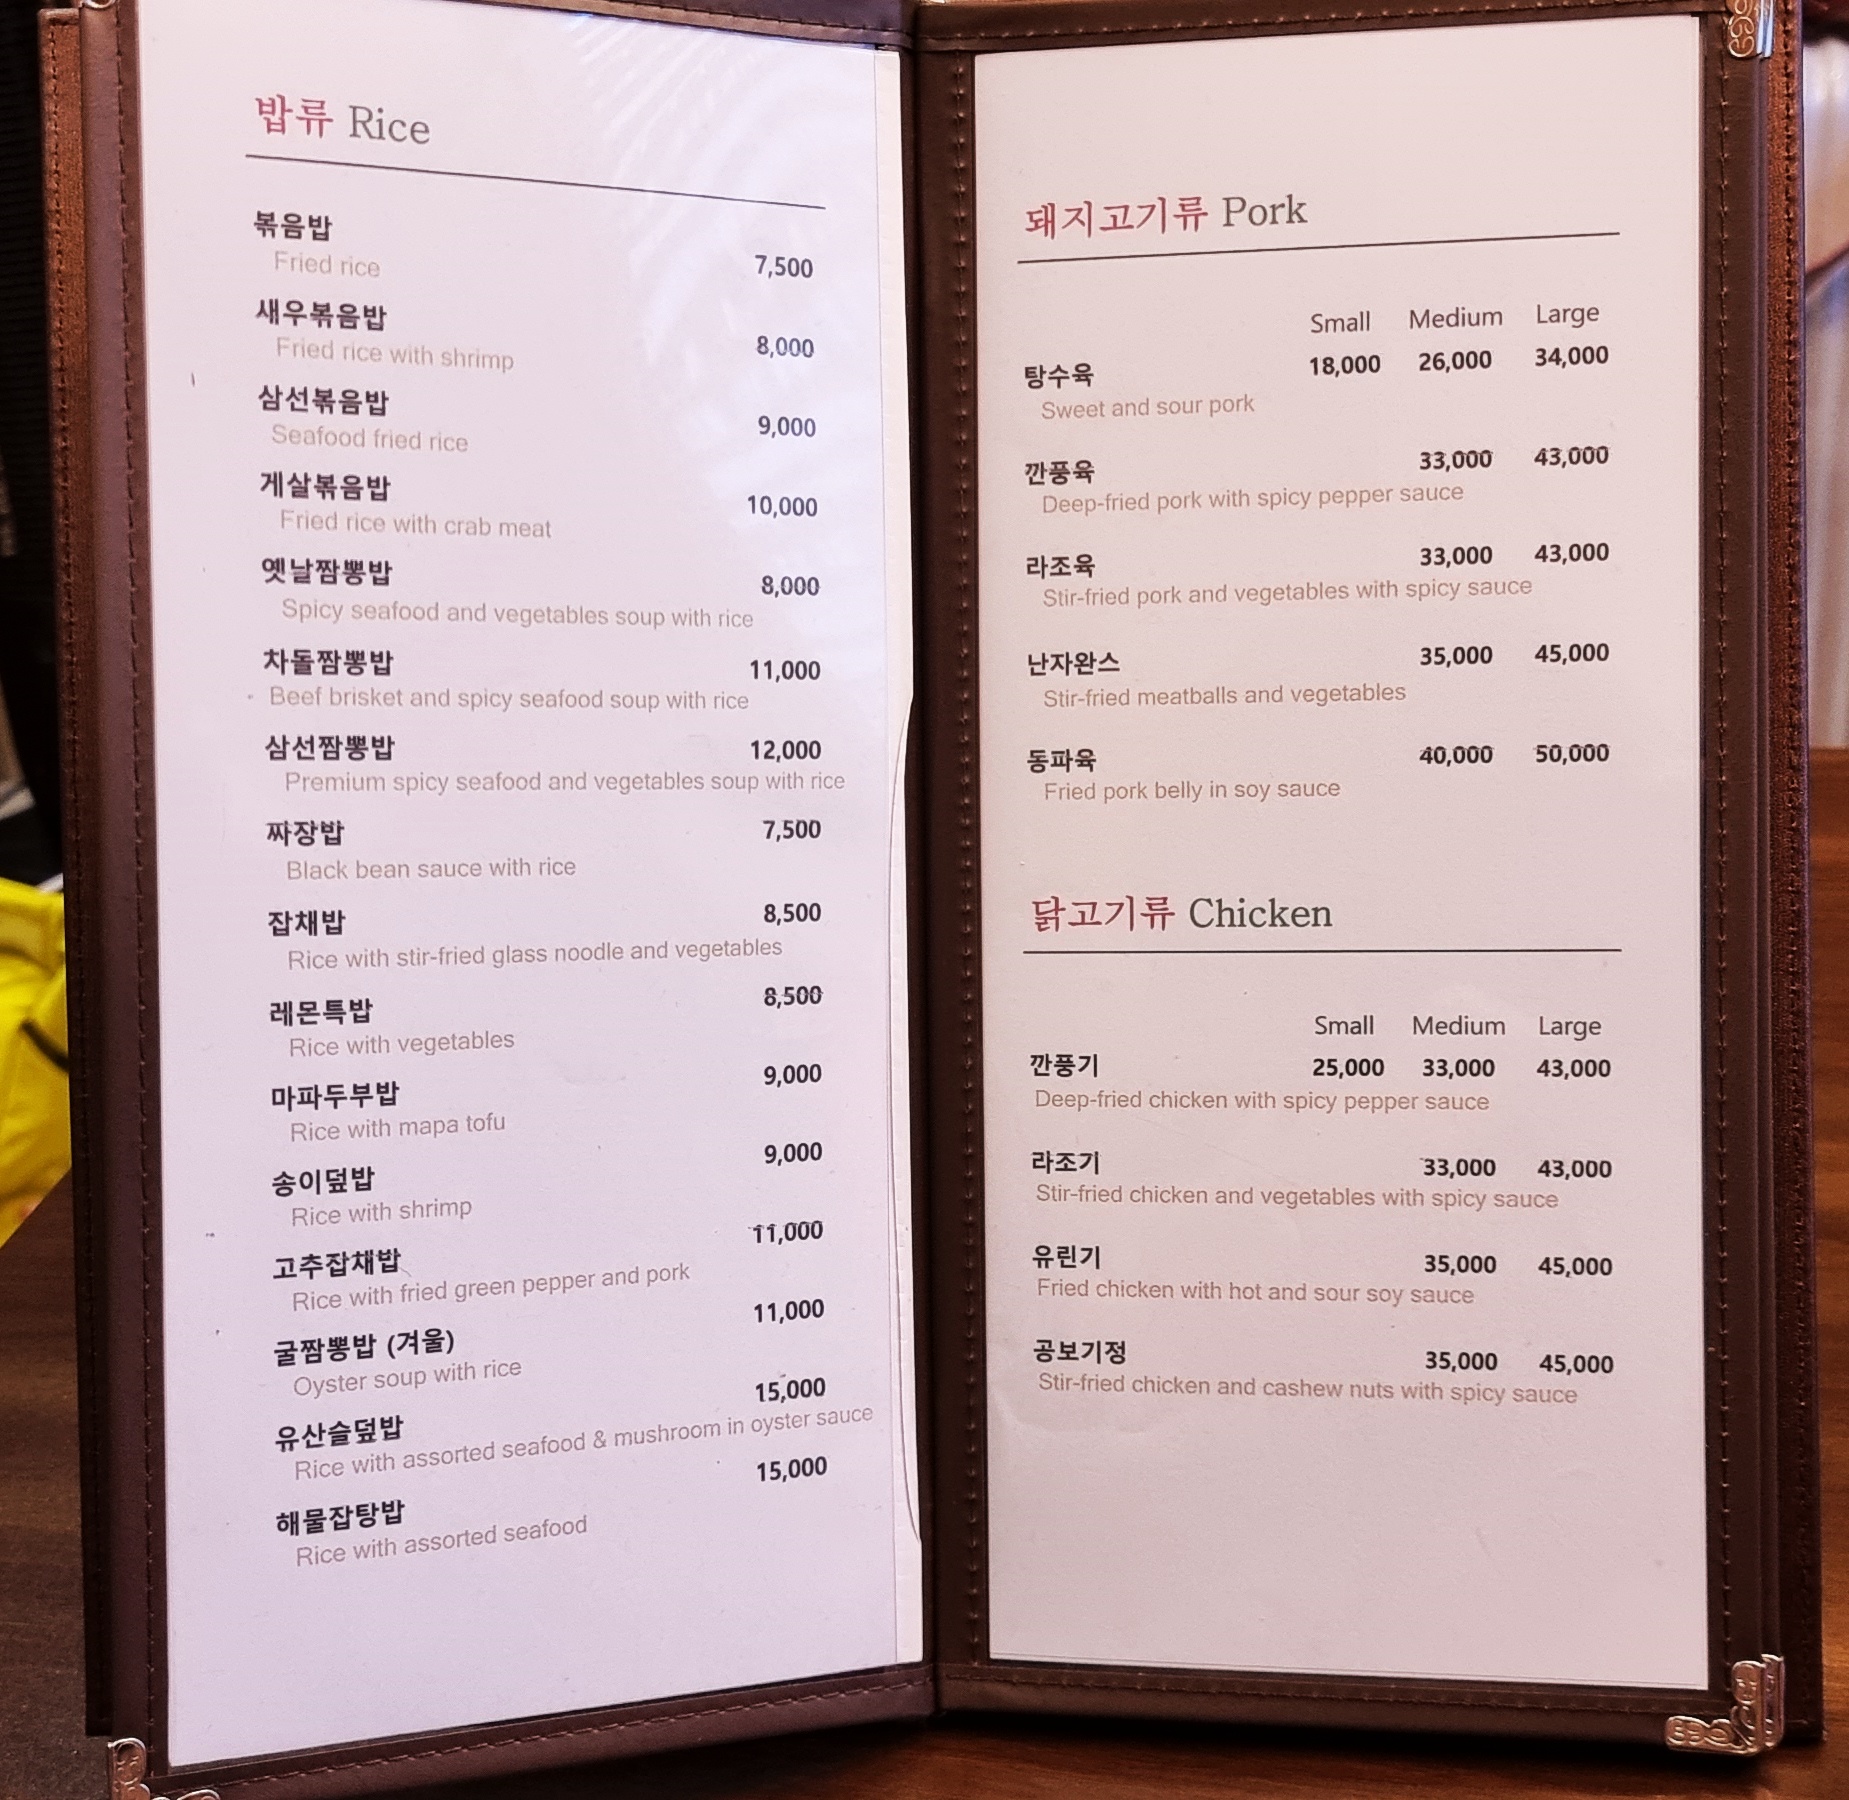 밥류 Rice
볶음밥
Fried rice 7,500
새우볶음밥
Fried rice with shrimp 8,000
삼선볶음밥
Seafood fried rice 9,000
게살볶음밥
Fried rice with crab meat 10,000
옛날짬뽕밥 8,000
Spicy seafood and vegetables soup with rice
차돌짬뽕밥 11,000
Beef brisket and spicy seafood soup with rice
삼선짬뽕밥 12,000
Premium spicy seafood and vegetables soup with rice
짜장밥 7,500
Black bean sauce with rice
잡채밥 8,500
Rice with stir-fried glass noodle and vegetables
레몬특밥 8,500
Rice with vegetables
마파두부밥 9,000
Rice with mapa tofu
송이덮밥 9,000
Rice with shrimp
고추잡채밥 11,000
Rice with fried green pepper and pork
굴짬뽕밥 (겨울) 11,000
Oyster soup with rice
유산슬덮밥 15,000
Rice with assorted seafood & mushroom in oyster sauce
해물잡탕밥 15,000
Rice with assorted seafood
돼지고기류 Pork
Small Medium Large
탕수육 18,000 26,000 34,000
Sweet and sour pork
깐풍육 33,000 43,000
Deep-fried pork with spicy pepper sauce
라조육 33,000 43,000
Stir-fried pork and vegetables with spicy sauce
난자완스 35,000 45,000
Stir-fried meatballs and vegetables
동파육 40,000 50,000
Fried pork belly in soy sauce
닭고기류 Chicken
Small Medium Large
깐풍기 25,000 33,000 43,000
Deep-fried chicken with spicy pepper sauce
라조기 33,000 43,000
Stir-fried chicken and vegetables with spicy sauce
유린기 35,000 45,000
Fried chicken with hot and sour soy sauce
공보기정 35,000 45,000
Stir-fried chicken and cashew nuts with spicy sauce